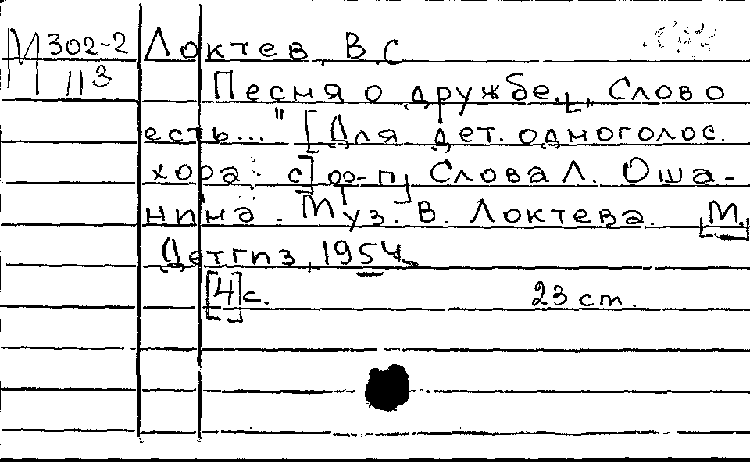 М 302-2 Локтев, В.С
113 Песня о дружбе. „Слово
есть..." [Для дет. одноголос.
хора с] ф-п] Слова Л. Оша-
нина. Муз. В. Локтева. [М.]
Детгиз, 1954.
[4] с. 23 см.